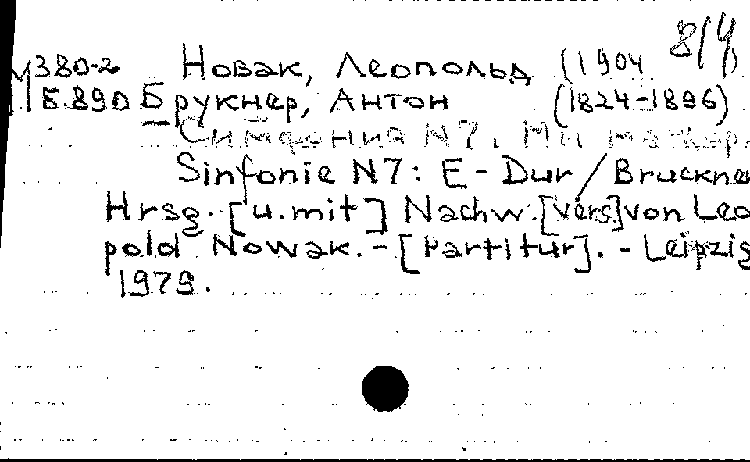 8/4
М380-2 Новак, Леопольд (1904
Б.890 Брукнер, Антон (1824-1896)
Симфония N7. Ми мажор.
Sinfonie N7: E-Dur / Bruckne
Hrsg. [u.mit] Nachw. [vers] von Leo
pold Nowak. - [Partitur]. - Leipzig
1979.